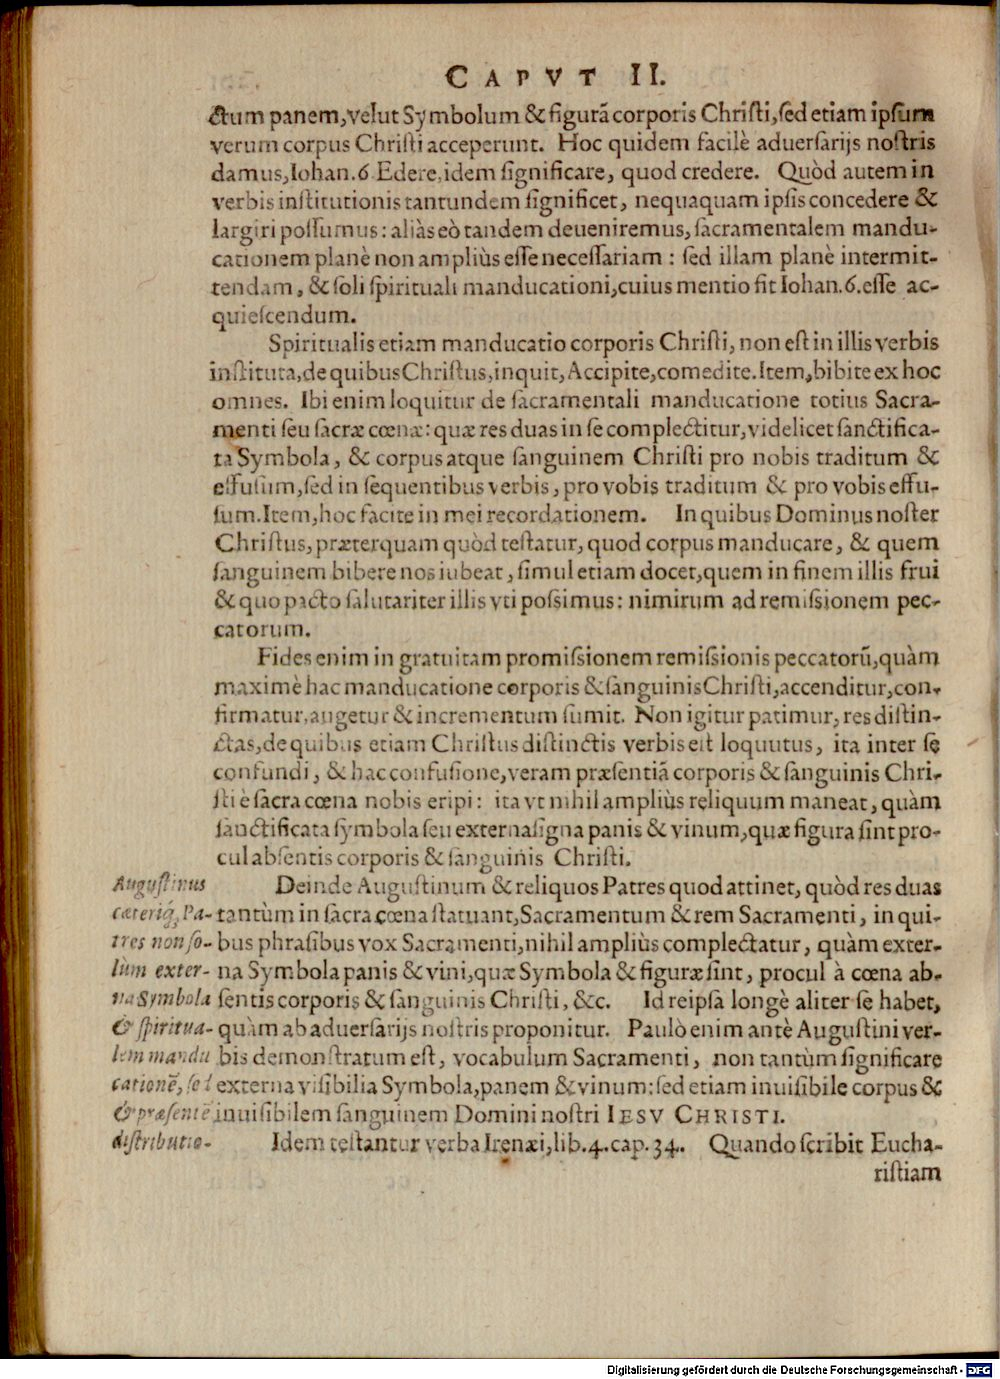 CAPVT II.
ctum panem, velut Symbolum & figurã corporis Christi, sed etiam ipsum
verum corpus Christi acceperunt. Hoc quidem facilè aduersarijs nostris
damus, Iohan. 6 Edere, idem significare, quod credere. Quòd autem in
verbis institutionis tantundem significet, nequaquam ipsis concedere &
largiri possumus: aliàs eò tandem deueniremus, sacramentalem mandu-
cationem planè non ampliùs esse necessariam: sed illam planè intermit-
tendam, & soli spirituali manducationi, cuius mentio fit Iohan. 6. esse ac-
quiescendum.
Spiritualis etiam manducatio corporis Christi, non est in illis verbis
instituta, de quibus Christus, inquit, Accipite, comedite. Item, bibite ex hoc
omnes. Ibi enim loquitur de sacramentali manducatione totius Sacra-
menti seu sacræ cœnæ: quæ res duas in se complectitur, videlicet sanctifica-
ta Symbola, & corpus atque sanguinem Christi pro nobis traditum &
effusum, sed in sequentibus verbis, pro vobis traditum & pro vobis effu-
sum. Item, hoc facite in mei recordationem. In quibus Dominus noster
Christus, præterquam quòd testatur, quod corpus manducare, & quem
sanguinem bibere nos iubeat, simul etiam docet, quem in finem illis frui
& quo pacto salutariter illis vti possimus: nimirum ad remissionem pec-
catorum.
Fides enim in gratuitam promissionem remissionis peccatorũ, quàm
maximè hac manducatione corporis & sanguinis Christi, accenditur, con-
firmatur, augetur & incrementum sumit. Non igitur patimur, res distin-
ctas, de quibus etiam Christus distinctis verbis est loquutus, ita inter se
confundi, & hac confusione, veram præsentiã corporis & sanguinis Chri-
sti è sacra cœna nobis eripi: ita vt nihil ampliùs reliquum maneat, quàm
sanctificata symbola seu externa signa panis & vinum, quæ figura sint pro-
cul absentis corporis & sanguinis Christi.
Augustinus
cæteriq́, Pa-
tres non so-
lùm exter-
na Symbola
& spiritua-
lem mandu
cationẽ, sed
& præsentẽ
distributio-
Deinde Augustinum & reliquos Patres quod attinet, quòd res duas
tantùm in sacra cœna statuant, Sacramentum & rem Sacramenti, in qui-
bus phrasibus vox Sacramenti, nihil ampliùs complectatur, quàm exter-
na Symbola panis & vini, quæ Symbola & figuræ sint, procul à cœna ab-
sentis corporis & sanguinis Christi, &c. Id reipsa longè aliter se habet,
quàm ab aduersarijs nostris proponitur. Paulò enim antè Augustini ver-
bis demonstratum est, vocabulum Sacramenti, non tantùm significare
externa visibilia Symbola, panem & vinum: sed etiam inuisibile corpus &
inuisibilem sanguinem Domini nostri IESV CHRISTI.
Idem testantur verba Irenæi, lib. 4. cap. 34. Quando scribit Eucha-
ristiam
Digitalisierung gefördert durch die Deutsche Forschungsgemeinschaft - DFG